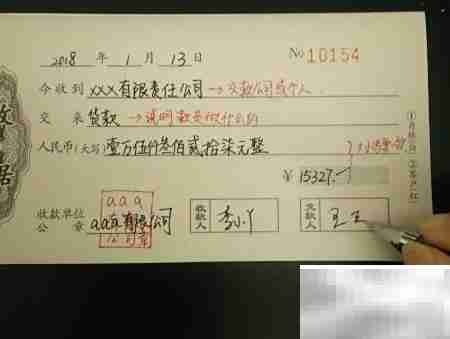 2018 年 1 月 13 日 No 10154
今收到 XXX有限责任公司 → 交款公司或个人
交来 货款 → 说明款是做什么的
人民币(大写) 壹万伍仟叁佰贰拾柒元整
¥ 15327.-
aaa
收款单位 公章 aaa有限公司
公司章
收款人 李小丫
交款人 王五